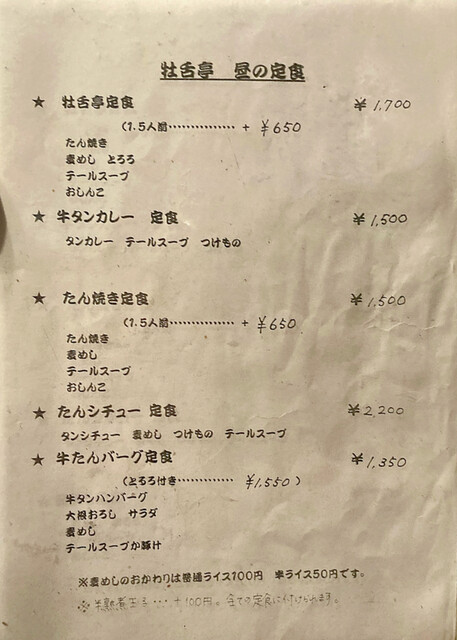 牡舌亭　昼の定食
★　牡舌亭定食　￥1,700
（1.5人前‥‥‥‥‥‥ + ￥650
たん焼き
麦めし　とろろ
テールスープ
おしんこ
★　牛タンカレー　定食　￥1,500
タンカレー　テールスープ　つけもの
★　たん焼き定食　￥1,500
（1.5人前‥‥‥‥‥‥ + ￥650
たん焼き
麦めし
テールスープ
おしんこ
★　たんシチュー　定食　￥2,200
タンシチュー　麦めし　つけもの　テールスープ
★　牛たんバーグ定食　￥1,350
（とろろ付き‥‥‥‥‥ ￥1,550）
牛タンハンバーグ
大根おろし　サラダ
麦めし
テールスープか豚汁
※麦めしのおかわりは普通ライス100円　半ライス50円です。
※半熟煮玉子・・・+100円。全ての定食に付けられます。